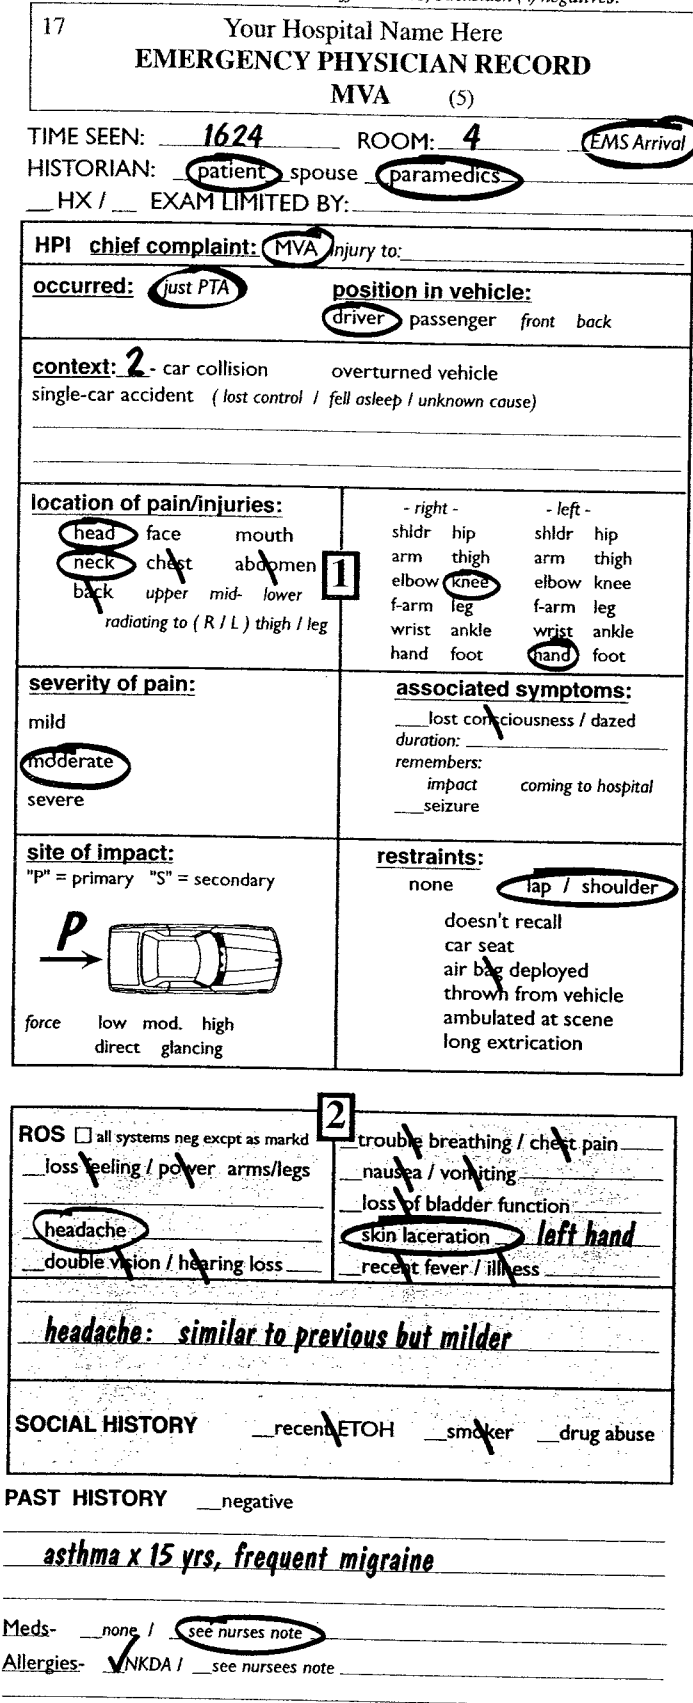 17
Your Hospital Name Here
EMERGENCY PHYSICIAN RECORD
MVA (5)
TIME SEEN: 1624 ROOM: 4 EMS Arrival
HISTORIAN: patient spouse paramedics
__ HX / __ EXAM LIMITED BY:
HPI chief complaint: MVA Injury to:
occurred: just PTA position in vehicle:
driver passenger front back
context: 2 - car collision overturned vehicle
single-car accident ( lost control / fell asleep / unknown cause)
location of pain/injuries:
head face mouth
neck chest abdomen
back upper mid- lower
radiating to ( R / L ) thigh / leg
1
- right - - left -
shldr hip shldr hip
arm thigh arm thigh
elbow knee elbow knee
f-arm leg f-arm leg
wrist ankle wrist ankle
hand foot hand foot
severity of pain:
mild
moderate
severe
associated symptoms:
__lost consciousness / dazed
duration:
remembers:
impact coming to hospital
__seizure
site of impact:
"P" = primary "S" = secondary
P
force low mod. high
direct glancing
restraints:
none lap / shoulder
doesn't recall
car seat
air bag deployed
thrown from vehicle
ambulated at scene
long extrication
2
ROS ☐ all systems neg excpt as markd
__loss feeling / power arms/legs
headache
__double vision / hearing loss
__trouble breathing / chest pain
__nausea / vomiting
__loss of bladder function
skin laceration left hand
__recent fever / illness
headache: similar to previous but milder
SOCIAL HISTORY __recent ETOH __smoker __drug abuse
PAST HISTORY __negative
asthma x 15 yrs, frequent migraine
Meds- __none / see nurses note
Allergies- ✓NKDA / __see nursees note